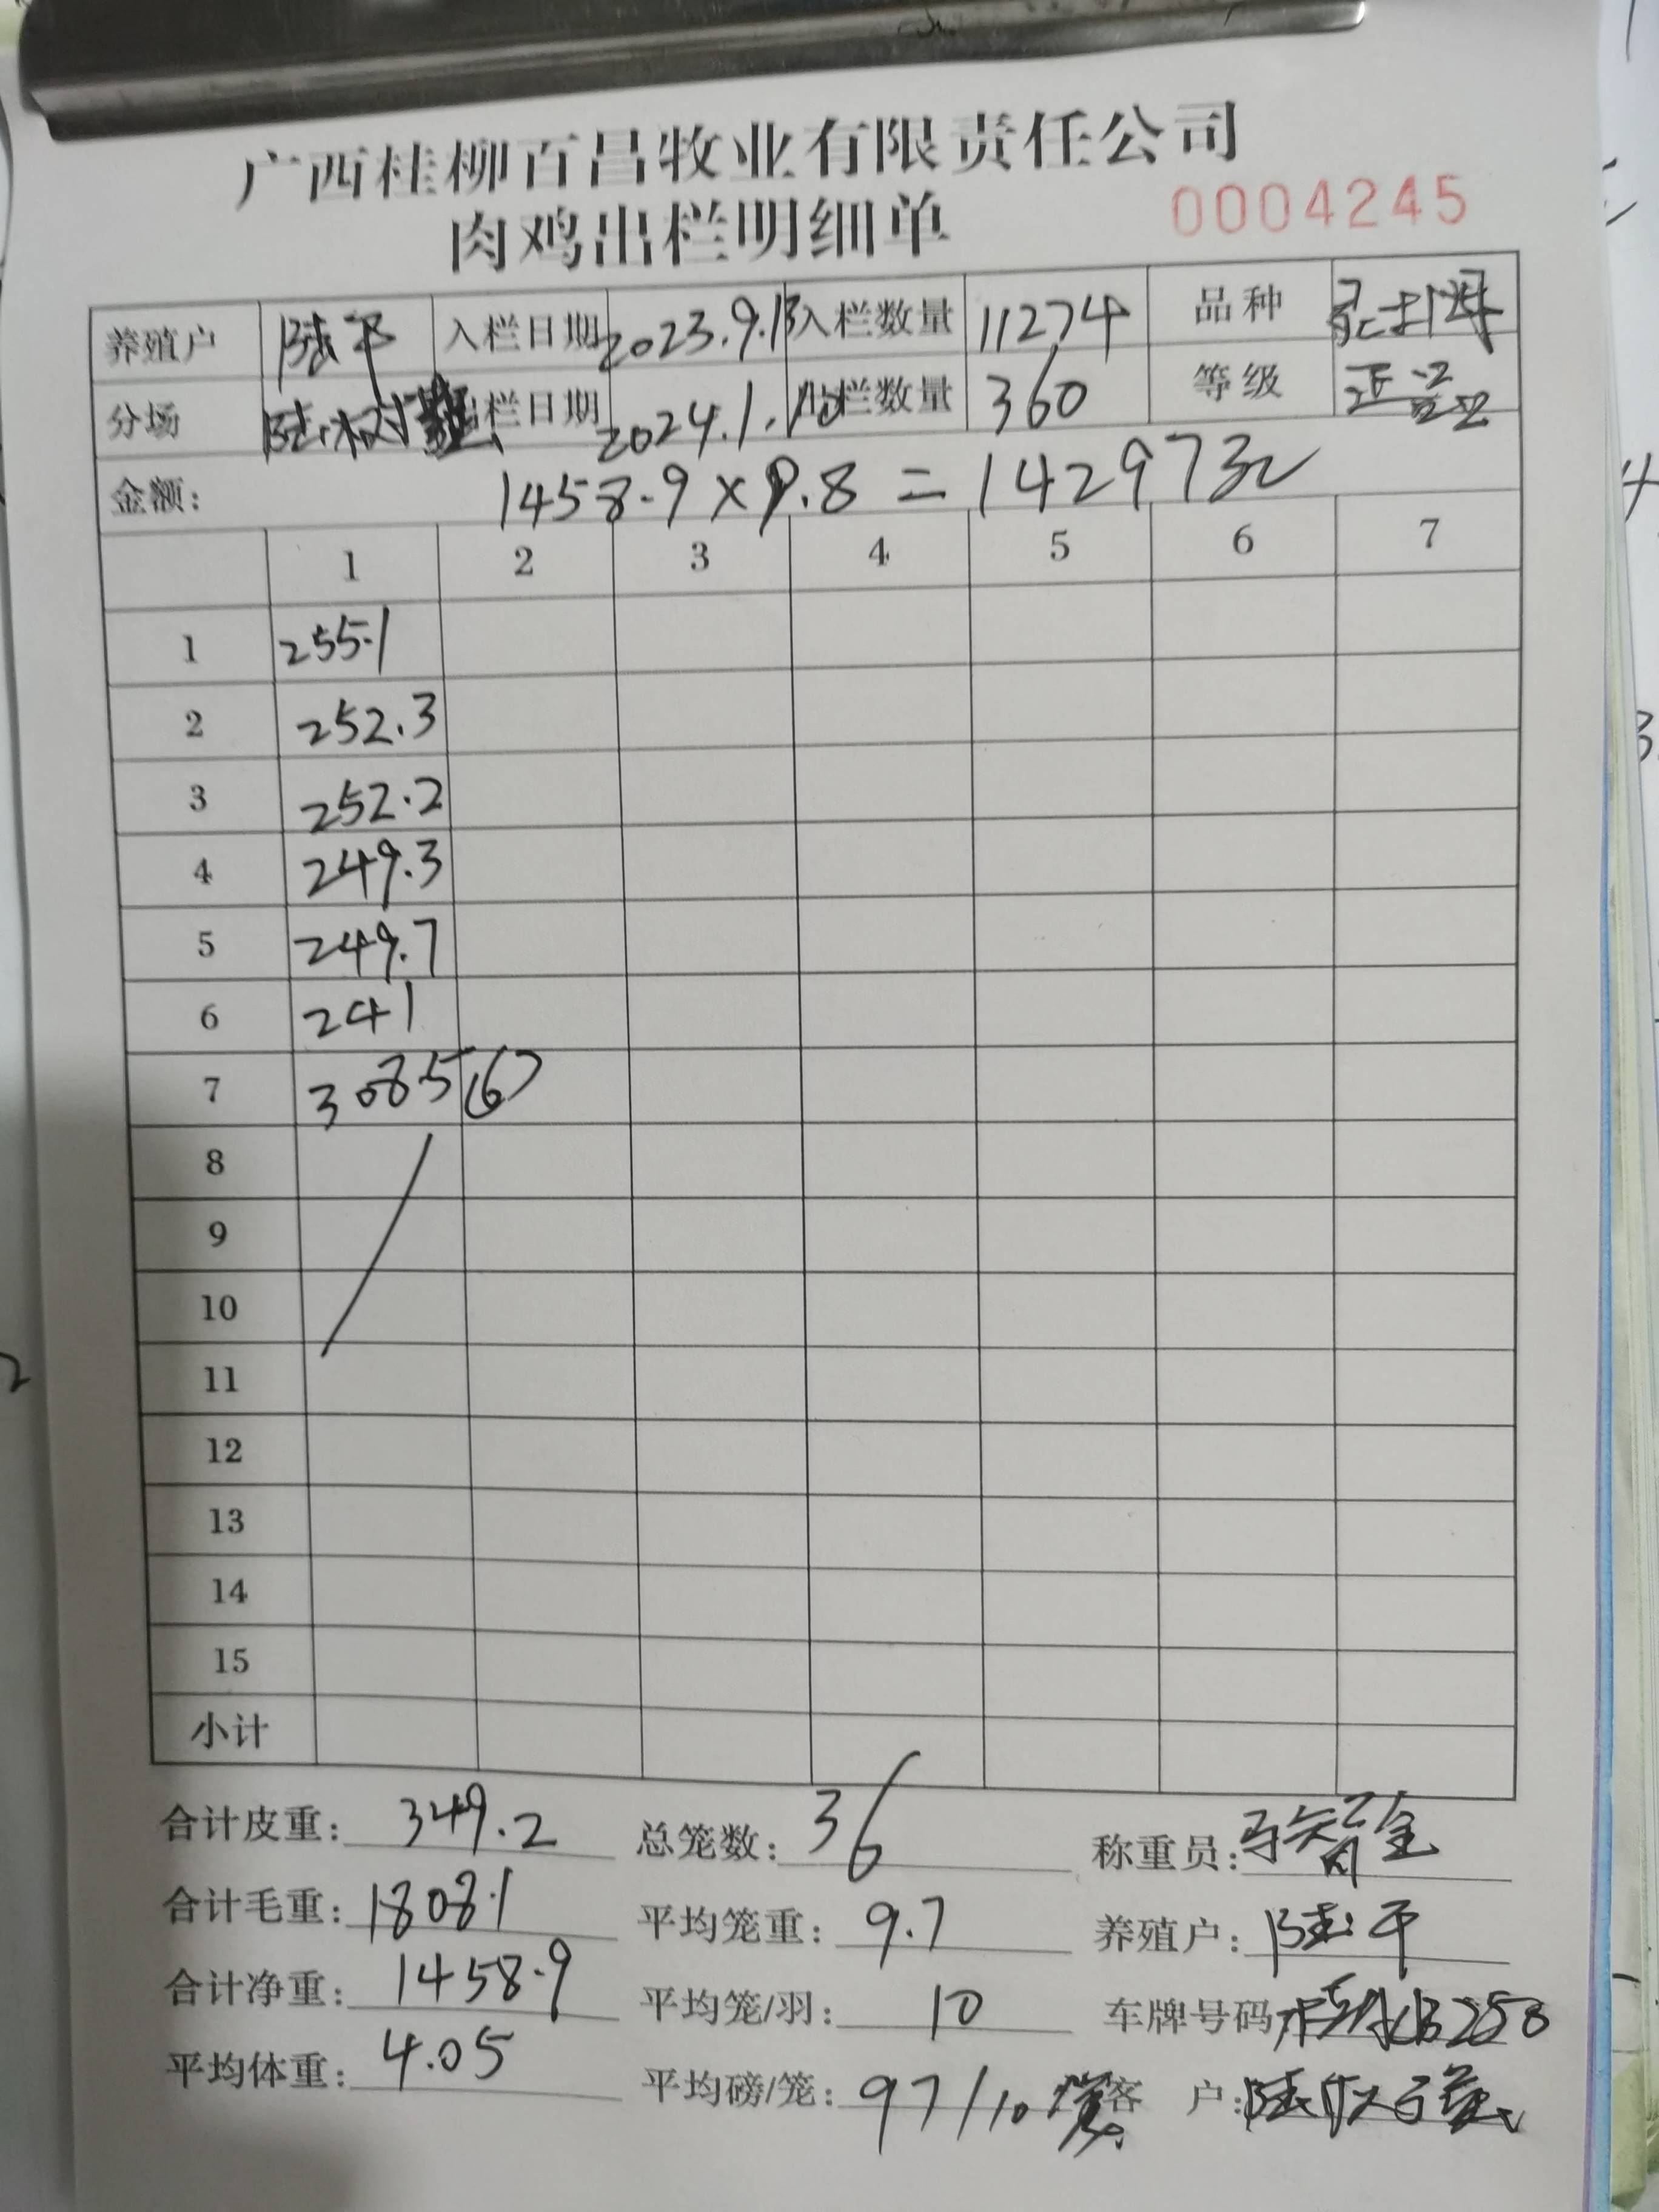 广西桂柳百昌牧业有限责任公司
肉鸡出栏明细单 0004245
养殖户 陆平 入栏日期 2023.9.13 入栏数量 11274 品种
分场 出栏日期 2024.1.10 出栏数量 360 等级 正品
金额: 1458.9×9.8=14297元
1 2 3 4 5 6 7
1 255.1
2 252.3
3 252.2
4 249.3
5 249.7
6 241
7 308.5 (6)
8
9
10
11
12
13
14
15
小计
合计皮重: 349.2 总笼数: 36 称重员:
合计毛重: 1808.1 平均笼重: 9.7 养殖户: 陆平
合计净重: 1458.9 平均笼/羽: 10 车牌号码:
平均体重: 4.05 平均磅/笼: 97/10 客户: